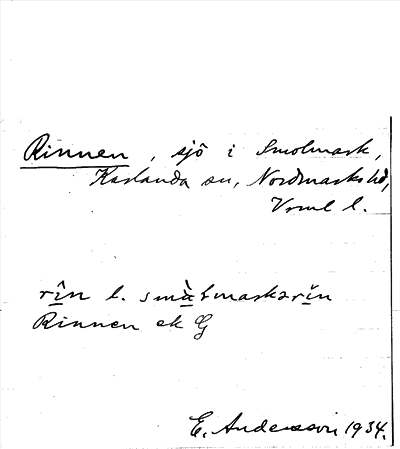 Rinnen, sjö i Smolmark,
Karlanda sn, Nordmarks hd,
Vrml l.
rîn l. smàlmaskərín
Rinnen ek G
E. Andersson 1934.